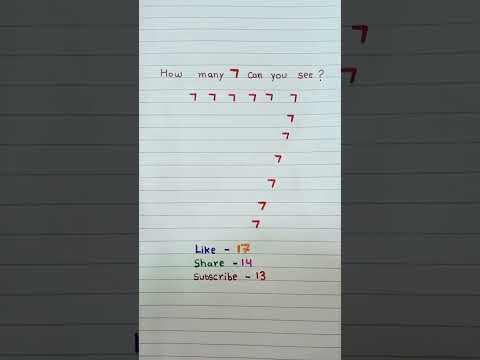 How many 7 Can you see?
7 7 7 7 7 7
7
7
7
7
7
7
Like - 17
Share - 14
Subscribe - 13